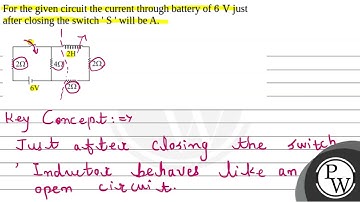 For the given circuit the current through battery of 6 V just
after closing the switch ' S ' will be A.
S
2H
2Ω 4Ω 2Ω
2Ω
6V
Key Concept :⇒
Just after closing the switch
' Inductor behaves like an
open circuit.
PW